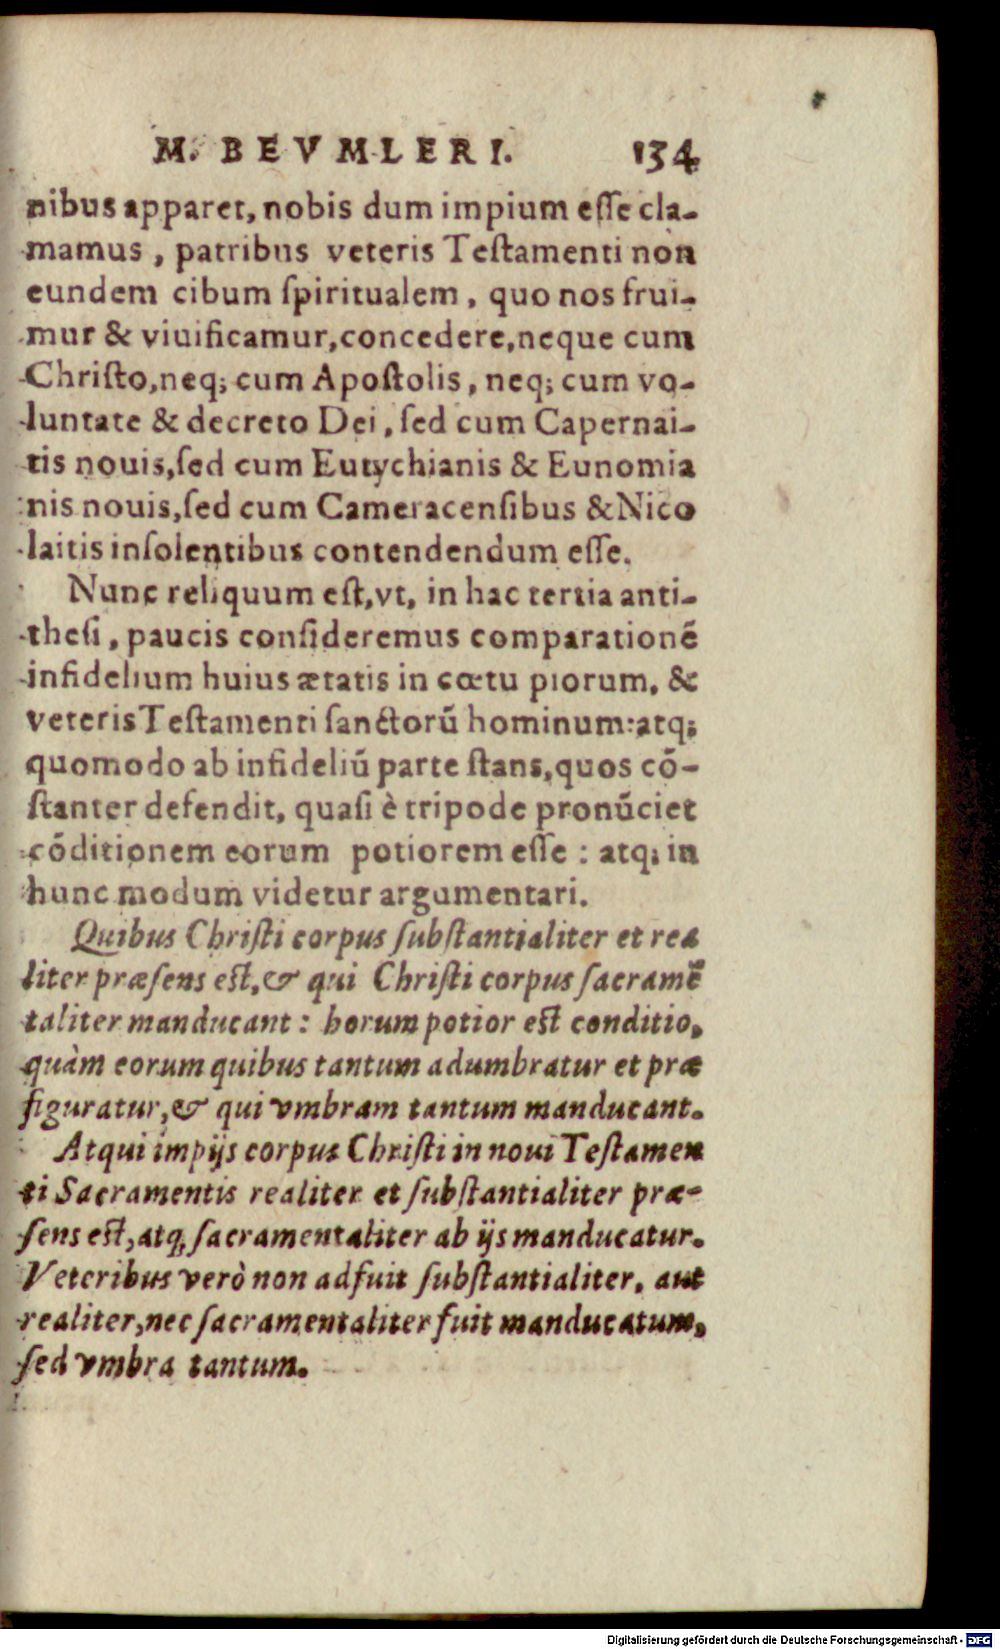 M. BEVMLERI. 134
nibus apparet, nobis dum impium eſſe cla-
mamus, patribus veteris Teſtamenti non
eundem cibum ſpiritualem, quo nos frui-
mur & viuificamur, concedere, neque cum
Chriſto, neq; cum Apoſtolis, neq; cum vo-
luntate & decreto Dei, ſed cum Capernai-
tis nouis, ſed cum Eutychianis & Eunomia
nis nouis, ſed cum Cameracenſibus & Nico
laitis inſolentibus contendendum eſſe.
Nunc reliquum eſt, vt, in hac tertia anti-
theſi, paucis conſideremus comparationē
infidelium huius ætatis in cœtu piorum, &
veteris Teſtamenti ſanctorū hominum: atq;
quomodo ab infideliū parte ſtans, quos cō-
ſtanter defendit, quaſi è tripode pronūciet
cōditionem eorum potiorem eſſe: atq; in
hunc modum videtur argumentari.
Quibus Chriſti corpus ſubſtantialiter et rea
liter præſens eſt, & qui Chriſti corpus ſacramē
taliter manducant: horum potior eſt conditio,
quàm eorum quibus tantum adumbratur et præ
figuratur, & qui vmbram tantum manducant.
Atqui impijs corpus Chriſti in noui Teſtamen
ti Sacramentis realiter et ſubſtantialiter præ-
ſens eſt, atq; ſacramentaliter ab ijs manducatur.
Veteribus verò non adfuit ſubſtantialiter, aut
realiter, nec ſacramentaliter fuit manducatum,
ſed vmbra tantum.
Digitalisierung gefördert durch die Deutsche Forschungsgemeinschaft - DFG